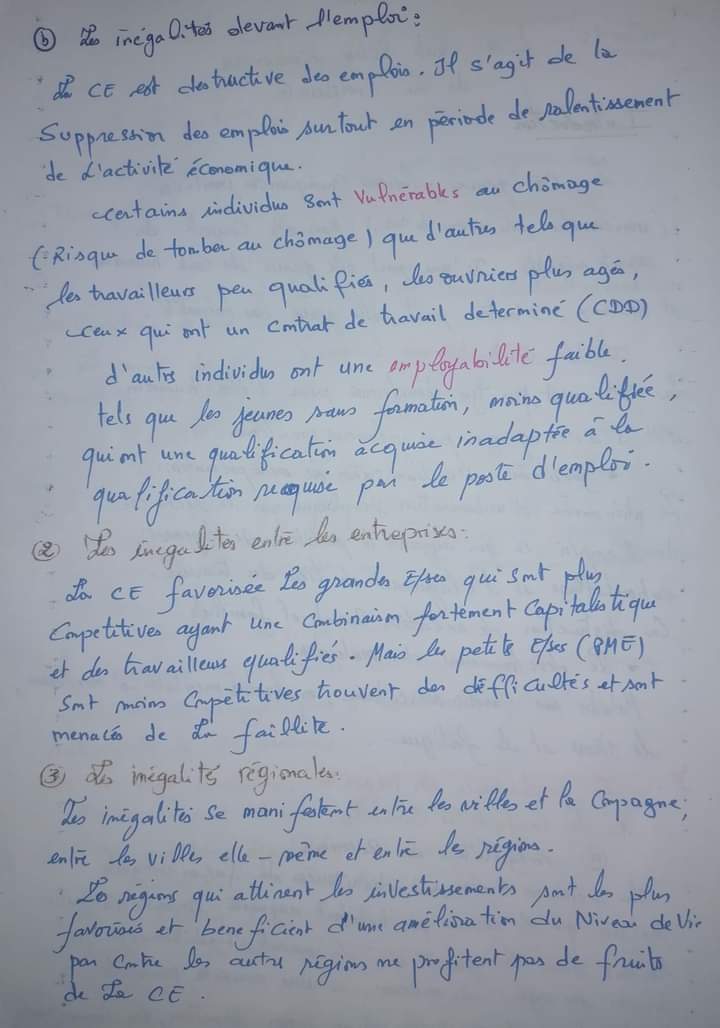 (b) Les inégalités devant l'emploi :
La CE est destructive des emplois. Il s'agit de la
Suppression des emplois surtout en période de ralentissement
de l'activité économique.
certains individus sont Vulnérables au chômage
(=Risque de tomber au chômage) que d'autres tels que
les travailleurs peu qualifiés, les ouvriers plus agés,
ceux qui ont un contrat de travail determiné (CDD)
d'autres individus ont une employabilité faible.
tels que les jeunes sans formation, moins qualifiée,
qui ont une qualification acquise inadaptée à la
qualification requise par le poste d'emploi.
(2) Les inegalités entre les entreprises :
La CE favorisée Les grandes E/ses qui sont plus
Competitives ayant une Combinaison fortement Capitalistique
et des travailleurs qualifiés. Mais les petits E/ses (PME)
Sont moins Compétitives trouvent des défficultés et sont
menacés de la faillite.
(3) Les inégalités régionales :
Les inégalités se manifestent entre les villes et la Compagne,
entre les villes elle-même et entre les régions.
Les régions qui attirent les investissements sont les plus
favorisés et beneficient d'une amélioration du Niveau de Vie
par contre les autres régions ne profitent pas de fruits
de La CE.